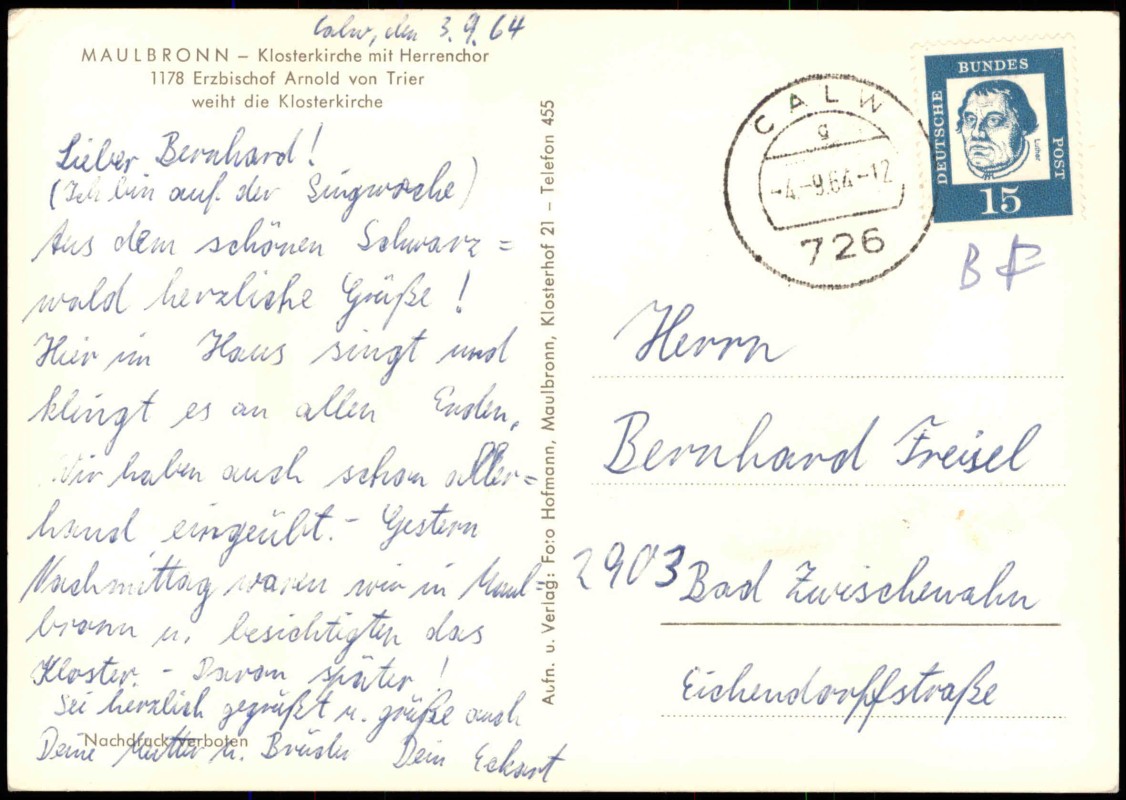 Calw, den 3.9.64
MAULBRONN – Klosterkirche mit Herrenchor
1178 Erzbischof Arnold von Trier
weiht die Klosterkirche
Lieber Bernhard!
(Ich bin auf der Singwoche)
Aus dem schönen Schwarz=
wald herzliche Grüße!
Hier im Haus singt und
klingt es an allen Enden,
Wir haben auch schon aller=
hand eingeübt. - Gestern
Nachmittag waren wir in Maul=
bronn u. besichtigten das
Kloster. - Davon später!
Sei herzlich gegrüßt u. grüße auch
Deine Mutter u. Brüder Dein Eckart
Nachdruck verboten
Aufn. u. Verlag: Foto Hofmann, Maulbronn, Klosterhof 21 – Telefon 455
CALW
g
-4.-9.64-12
726
DEUTSCHE BUNDES POST
Luther
15
B
Herrn
Bernhard Freisel
2903 Bad Zwischenahn
Eichendorffstraße